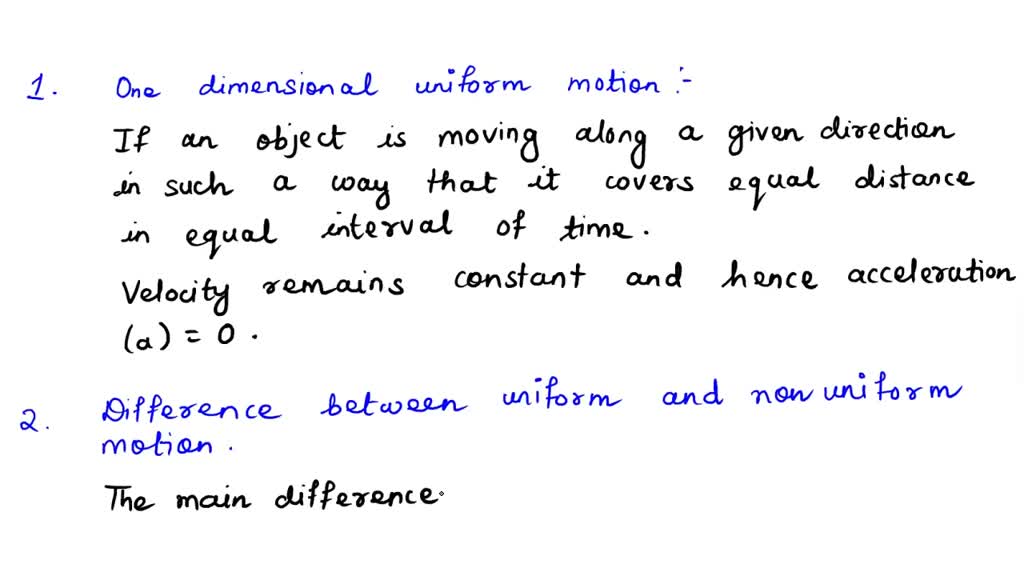 1. One dimensional uniform motion :-
If an object is moving along a given direction
in such a way that it covers equal distance
in equal interval of time.
Velocity remains constant and hence acceleration
(a) = 0.
2. Difference between uniform and non uniform
motion.
The main difference